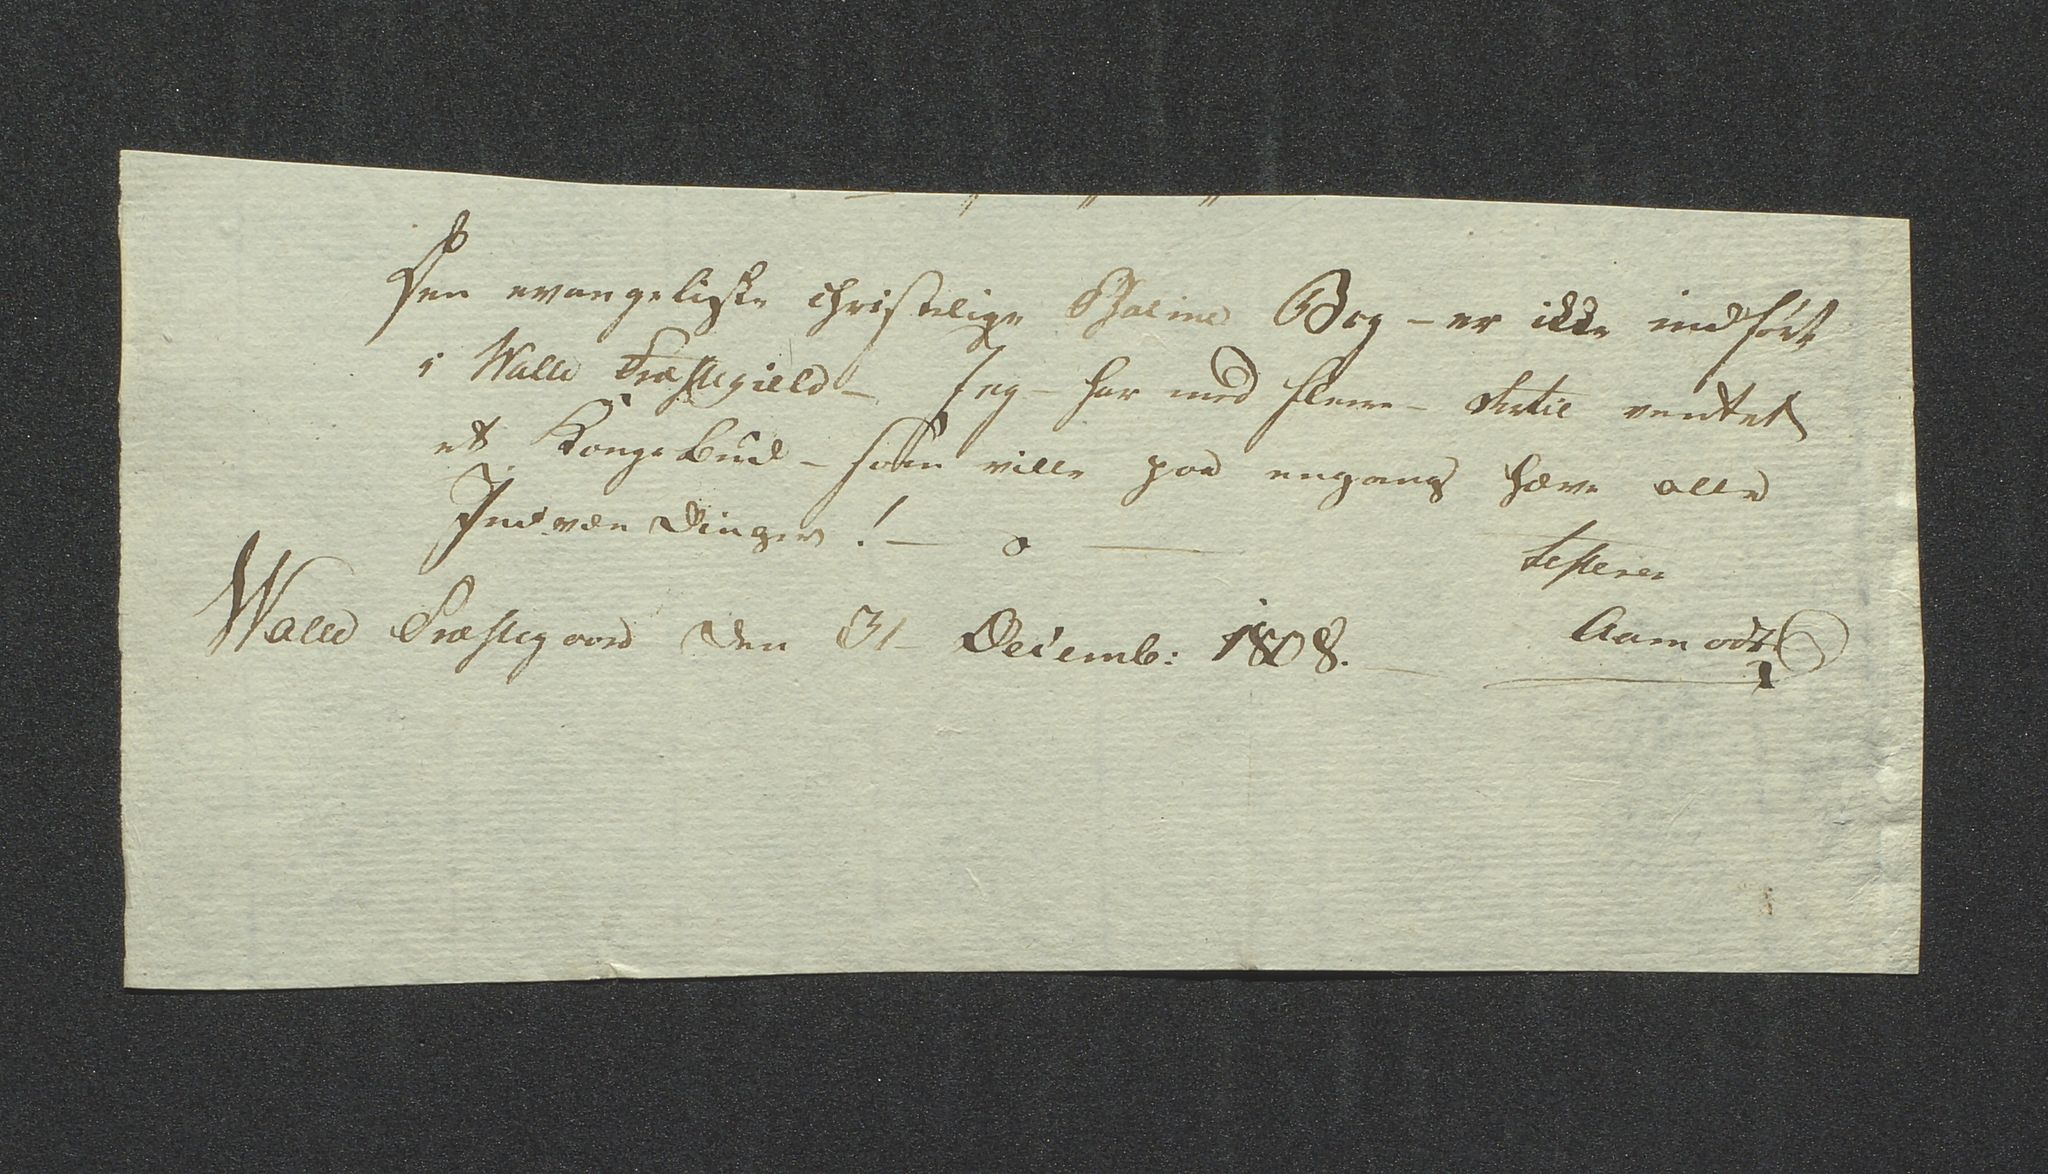 Den evangeliske christelige Psalme Bog – er ikke indført
i Walle Præstegield – Jeg – har med flere – ventet
et Konge bud – som ville paa engang hæve alle
Indvændinger! –
testerer
Walle Præstegaard den 31 Decemb: 1808. –
Aamodt